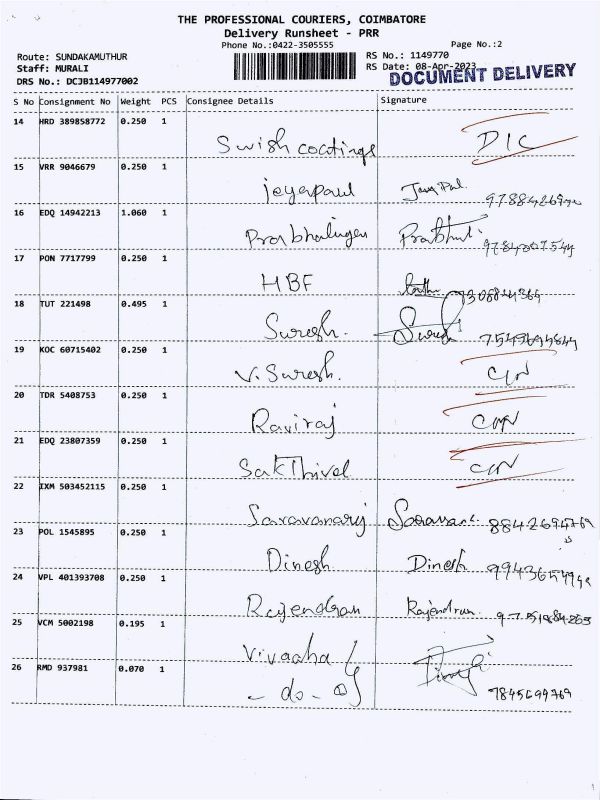 THE PROFESSIONAL COURIERS, COIMBATORE
Delivery Runsheet - PRR
Phone No.:0422-3505555
Page No.:2
Route: SUNDAKAMUTHUR
RS No.: 1149770
Staff: MURALI
RS Date: 08-Apr-2023
DRS No.: DCJB114977002
DOCUMENT DELIVERY
S No Consignment No Weight PCS Consignee Details Signature
14 HRD 389858772 0.250 1
Swish coatings D/C
15 VRR 9046679 0.250 1
jeyapaul
16 EDQ 14942213 1.060 1
Prabhalingam Prabhu
17 PON 7717799 0.250 1
HBF
18 TUT 221498 0.495 1
Suresh. Suresh
19 KOC 60715402 0.250 1
V. Suresh.
20 TDR 5408753 0.250 1
Raviraj
21 EDQ 23807359 0.250 1
SakThivel
22 IXM 503452115 0.250 1
Saravanaraj
23 POL 1545895 0.250 1
Dinesh Dinesh
24 VPL 401393708 0.250 1
Rajendran Rajendran
25 VCM 5002198 0.195 1
Vivaaha
26 RMD 937981 0.070 1
- do - 7845699769